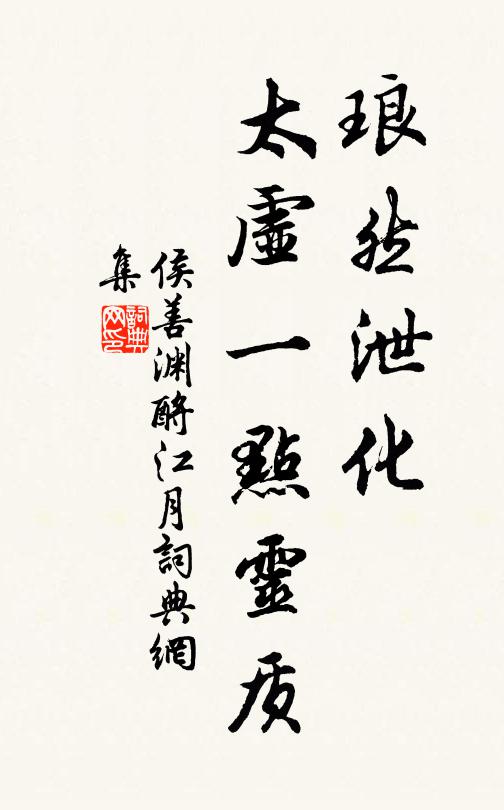 琅然泄化
太虛一點靈质
侯善渊酹江月詞典網
集
詞典
网印